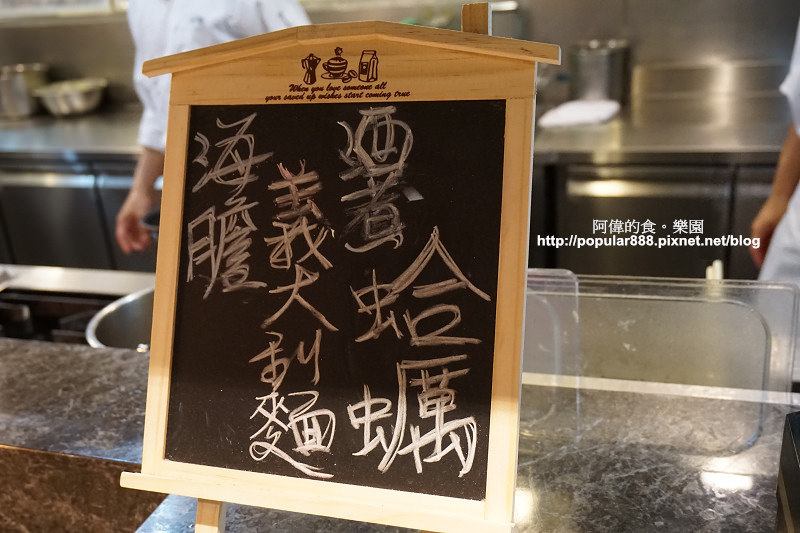 When you love someone all
your saved up wishes start coming true
酒煮
蛤蠣
義大利麵
海膽
阿偉的食。樂園
http://popular888.pixnet.net/blog